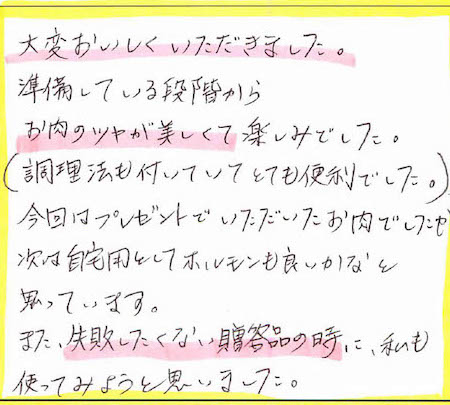 大変おいしくいただきました。
準備している段階から
お肉のツヤが美しくて楽しみでした。
(調理法も付いていてとても便利でした。)
今回はプレゼントでいただいたお肉でしたが
次は自宅用としてホルモンも良いかなと
思っています。
また、失敗したくない贈答品の時に、私も
使ってみようと思いました。